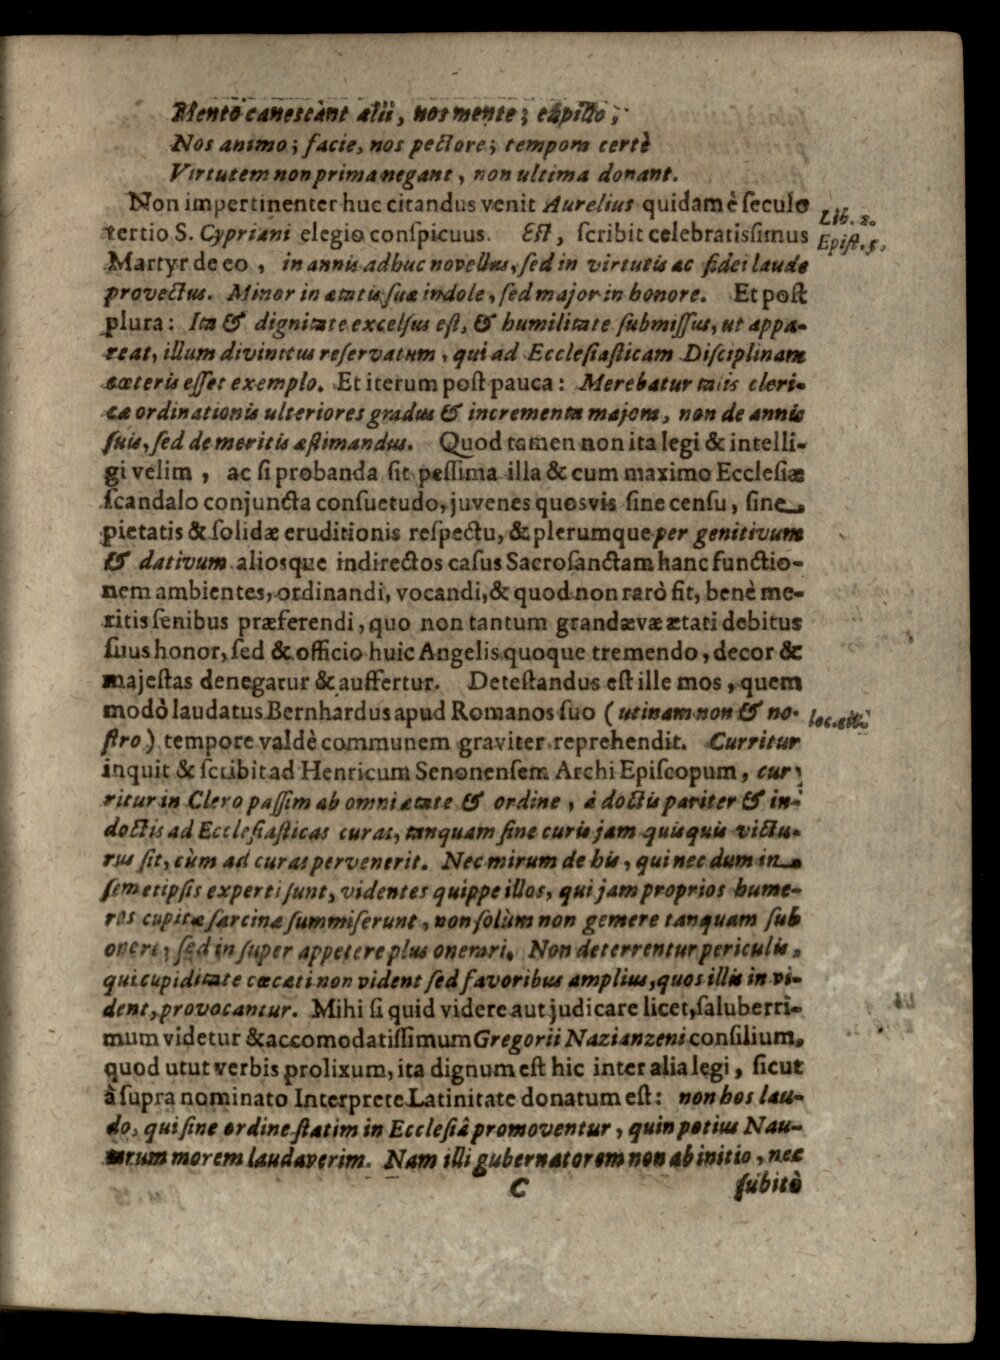 Mento canescànt alii, nos mente; capillo,
Nos animo; facie, nos pectore; tempora certè
Virtutem non prima negant, non ultima donant.
Non impertinenter huc citandus venit Aurelius quidam è seculo
tertio S. Cypriani elegio conspicuus. Est, scribit celebratissimus
Lib. 2.
Epist. 5.
Martyr de eo, in annis adhuc novellus, sed in virtutis ac fidei laude
provectus. Minor in ætatis suæ indole, sed major in honore. Et post
plura: Ita & dignitate excelsus est, & humilitate submissus, ut appa-
reat, illum divinitus reservatum, qui ad Ecclesiasticam Disciplinam
cæteris esset exemplo. Et iterum post pauca: Merebatur talis cleri-
cæ ordinationis ulteriores gradus & incrementa majora, non de annis
suis, sed de meritis æstimandus. Quod tamen non ita legi & intelli-
gi velim, ac si probanda sit pessima illa & cum maximo Ecclesiæ
scandalo conjuncta consuetudo, juvenes quosvis sine censu, sine
pietatis & solidæ eruditionis respectu, & plerumque per genitivum
& dativum aliosque indirectos casus Sacrosanctam hanc functio-
nem ambientes, ordinandi, vocandi, & quod non rarò fit, benè me-
ritis senibus præferendi, quo non tantum grandævæ ætati debitus
suus honor, sed & officio huic Angelis quoque tremendo, decor &
majestas denegatur & auffertur. Detestandus est ille mos, quem
modò laudatus Bernhardus apud Romanos suo (utinam non & no-
loc. cit.
stro) tempore valdè communem graviter reprehendit. Curritur
inquit & scribit ad Henricum Senonensem Archi Episcopum, cur-
ritur in Clero passim ab omni ætate & ordine, à doctis pariter & in-
doctis ad Ecclesiasticas curas, tanquam sine curis jam quisquis victu-
rus sit, cùm ad curas pervenerit. Nec mirum de his, qui nec dum in
semetipsis experti sunt, videntes quippe illos, qui jam proprios hume-
ros cupitæ sarcinæ summiserunt, non solùm non gemere tanquam sub
onere; sed in super appetere plus onerari. Non deterrentur periculis,
qui cupiditate cœcati non vident sed favoribus amplius, quos illis in vi-
dent, provocantur. Mihi si quid videre aut judicare licet, saluberri-
mum videtur & accomodatissimum Gregorii Nazianzeni consilium,
quod utut verbis prolixum, ita dignum est hic inter alia legi, sicut
â supra nominato Interprete Latinitate donatum est: non hos lau-
do, qui sine ordine statim in Ecclesiâ promoventur, quin potius Nau-
tarum morem laudaverim. Nam illi gubernatorem non ab initio, nec
C
subitò